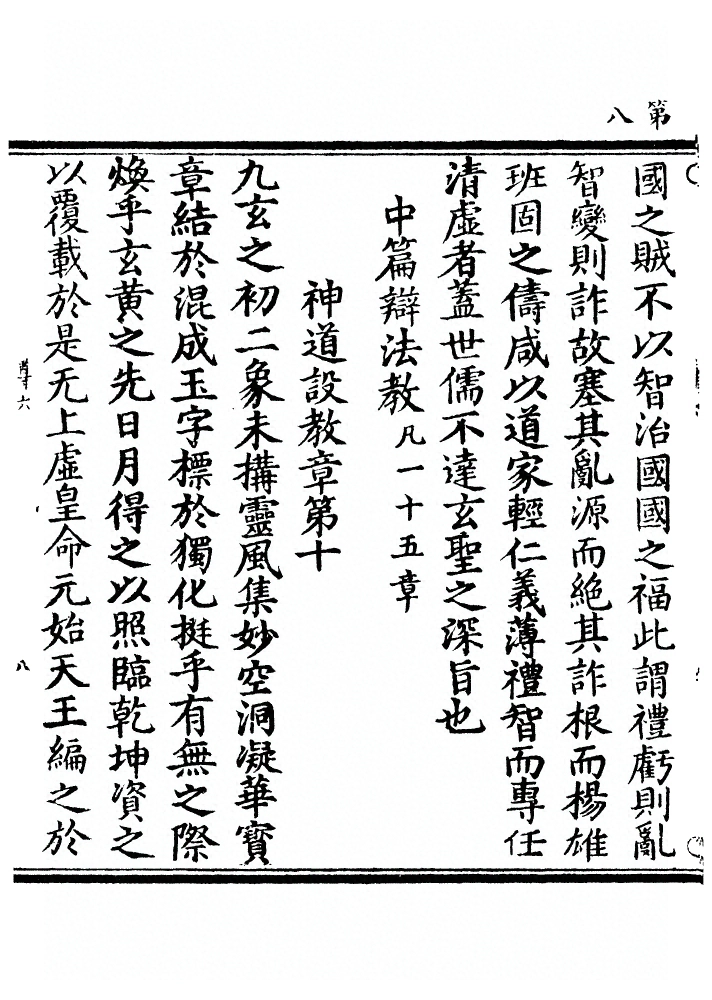 第八
國之賊不以智治國國之福此謂禮虧則亂
智變則詐故塞其亂源而絶其詐根而楊雄
班固之儔咸以道家輕仁義薄禮智而專任
清虛者蓋世儒不達玄聖之深旨也
中篇辯法教凡一十五章
神道設教章第十
九玄之初二象未構靈風集妙空洞凝華寶
章結於混成玉字標於獨化挺乎有無之際
煥乎玄黃之先日月得之以照臨乾坤資之
以覆載於是无上虛皇命元始天王編之於
尊六
八